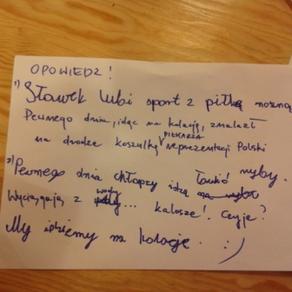 OPOWIEDZ!
1) Sławek lubi sport z piłką nożną
Pewnego dnia, idąc na kolację, znalazł
PIŁKARZA
na drodze koszulkę reprezentacji Polski
2) Pewnego dnia chłopcy idą łowić ryby.
wody
Wyciągają z ... kalosze! Czyje?
My idziemy na kolację. :)